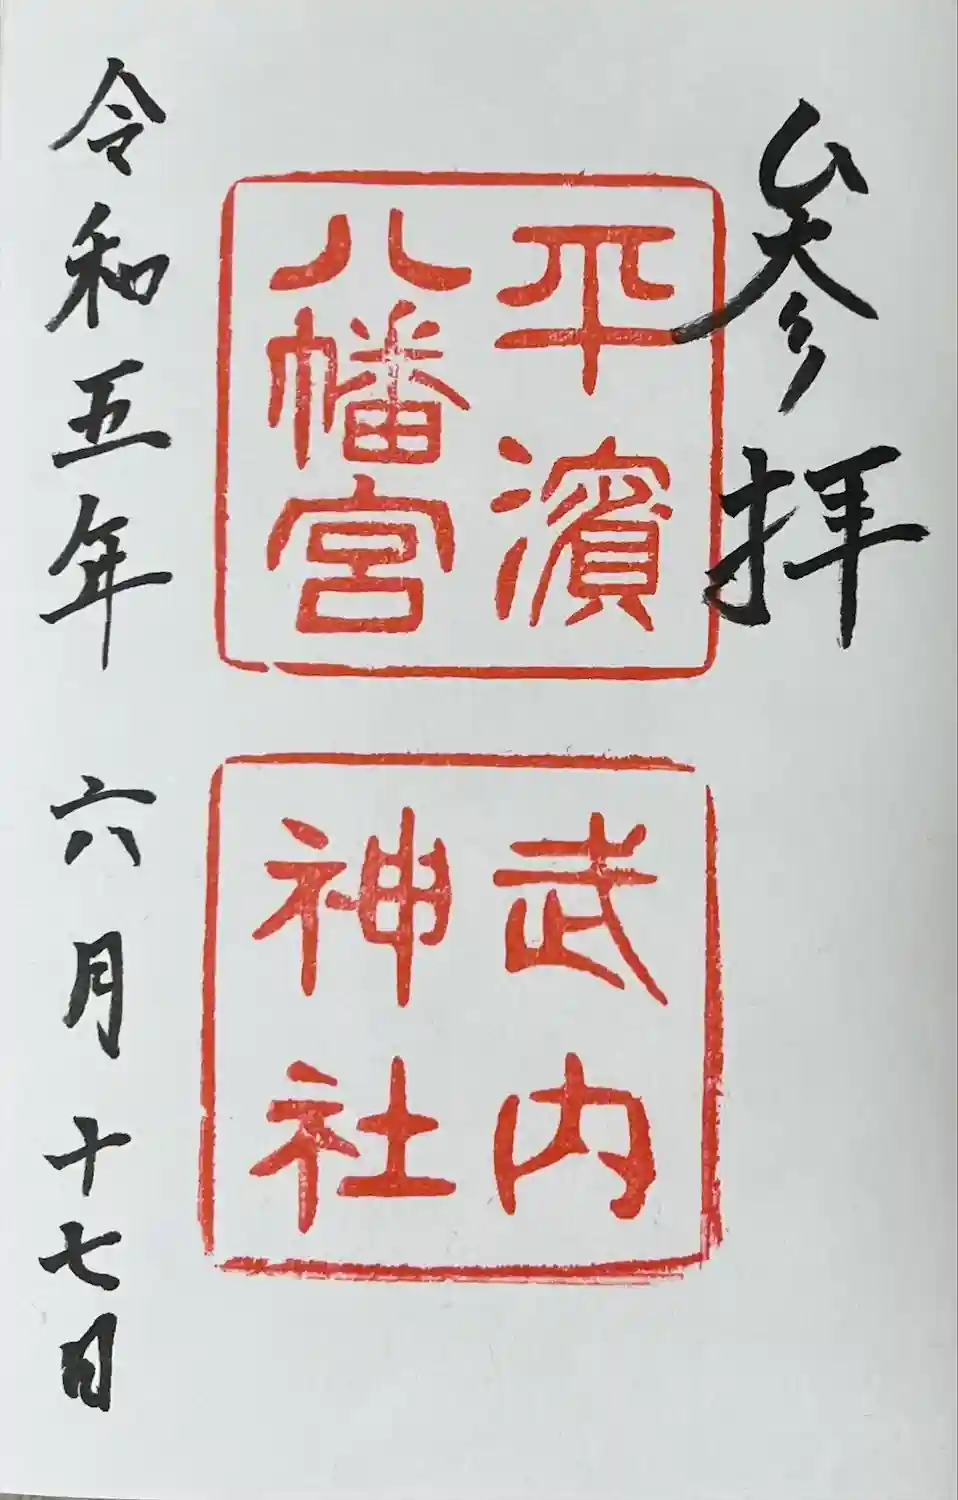 参拝
平濱
八幡宮
武内
神社
令和五年 六月十七日